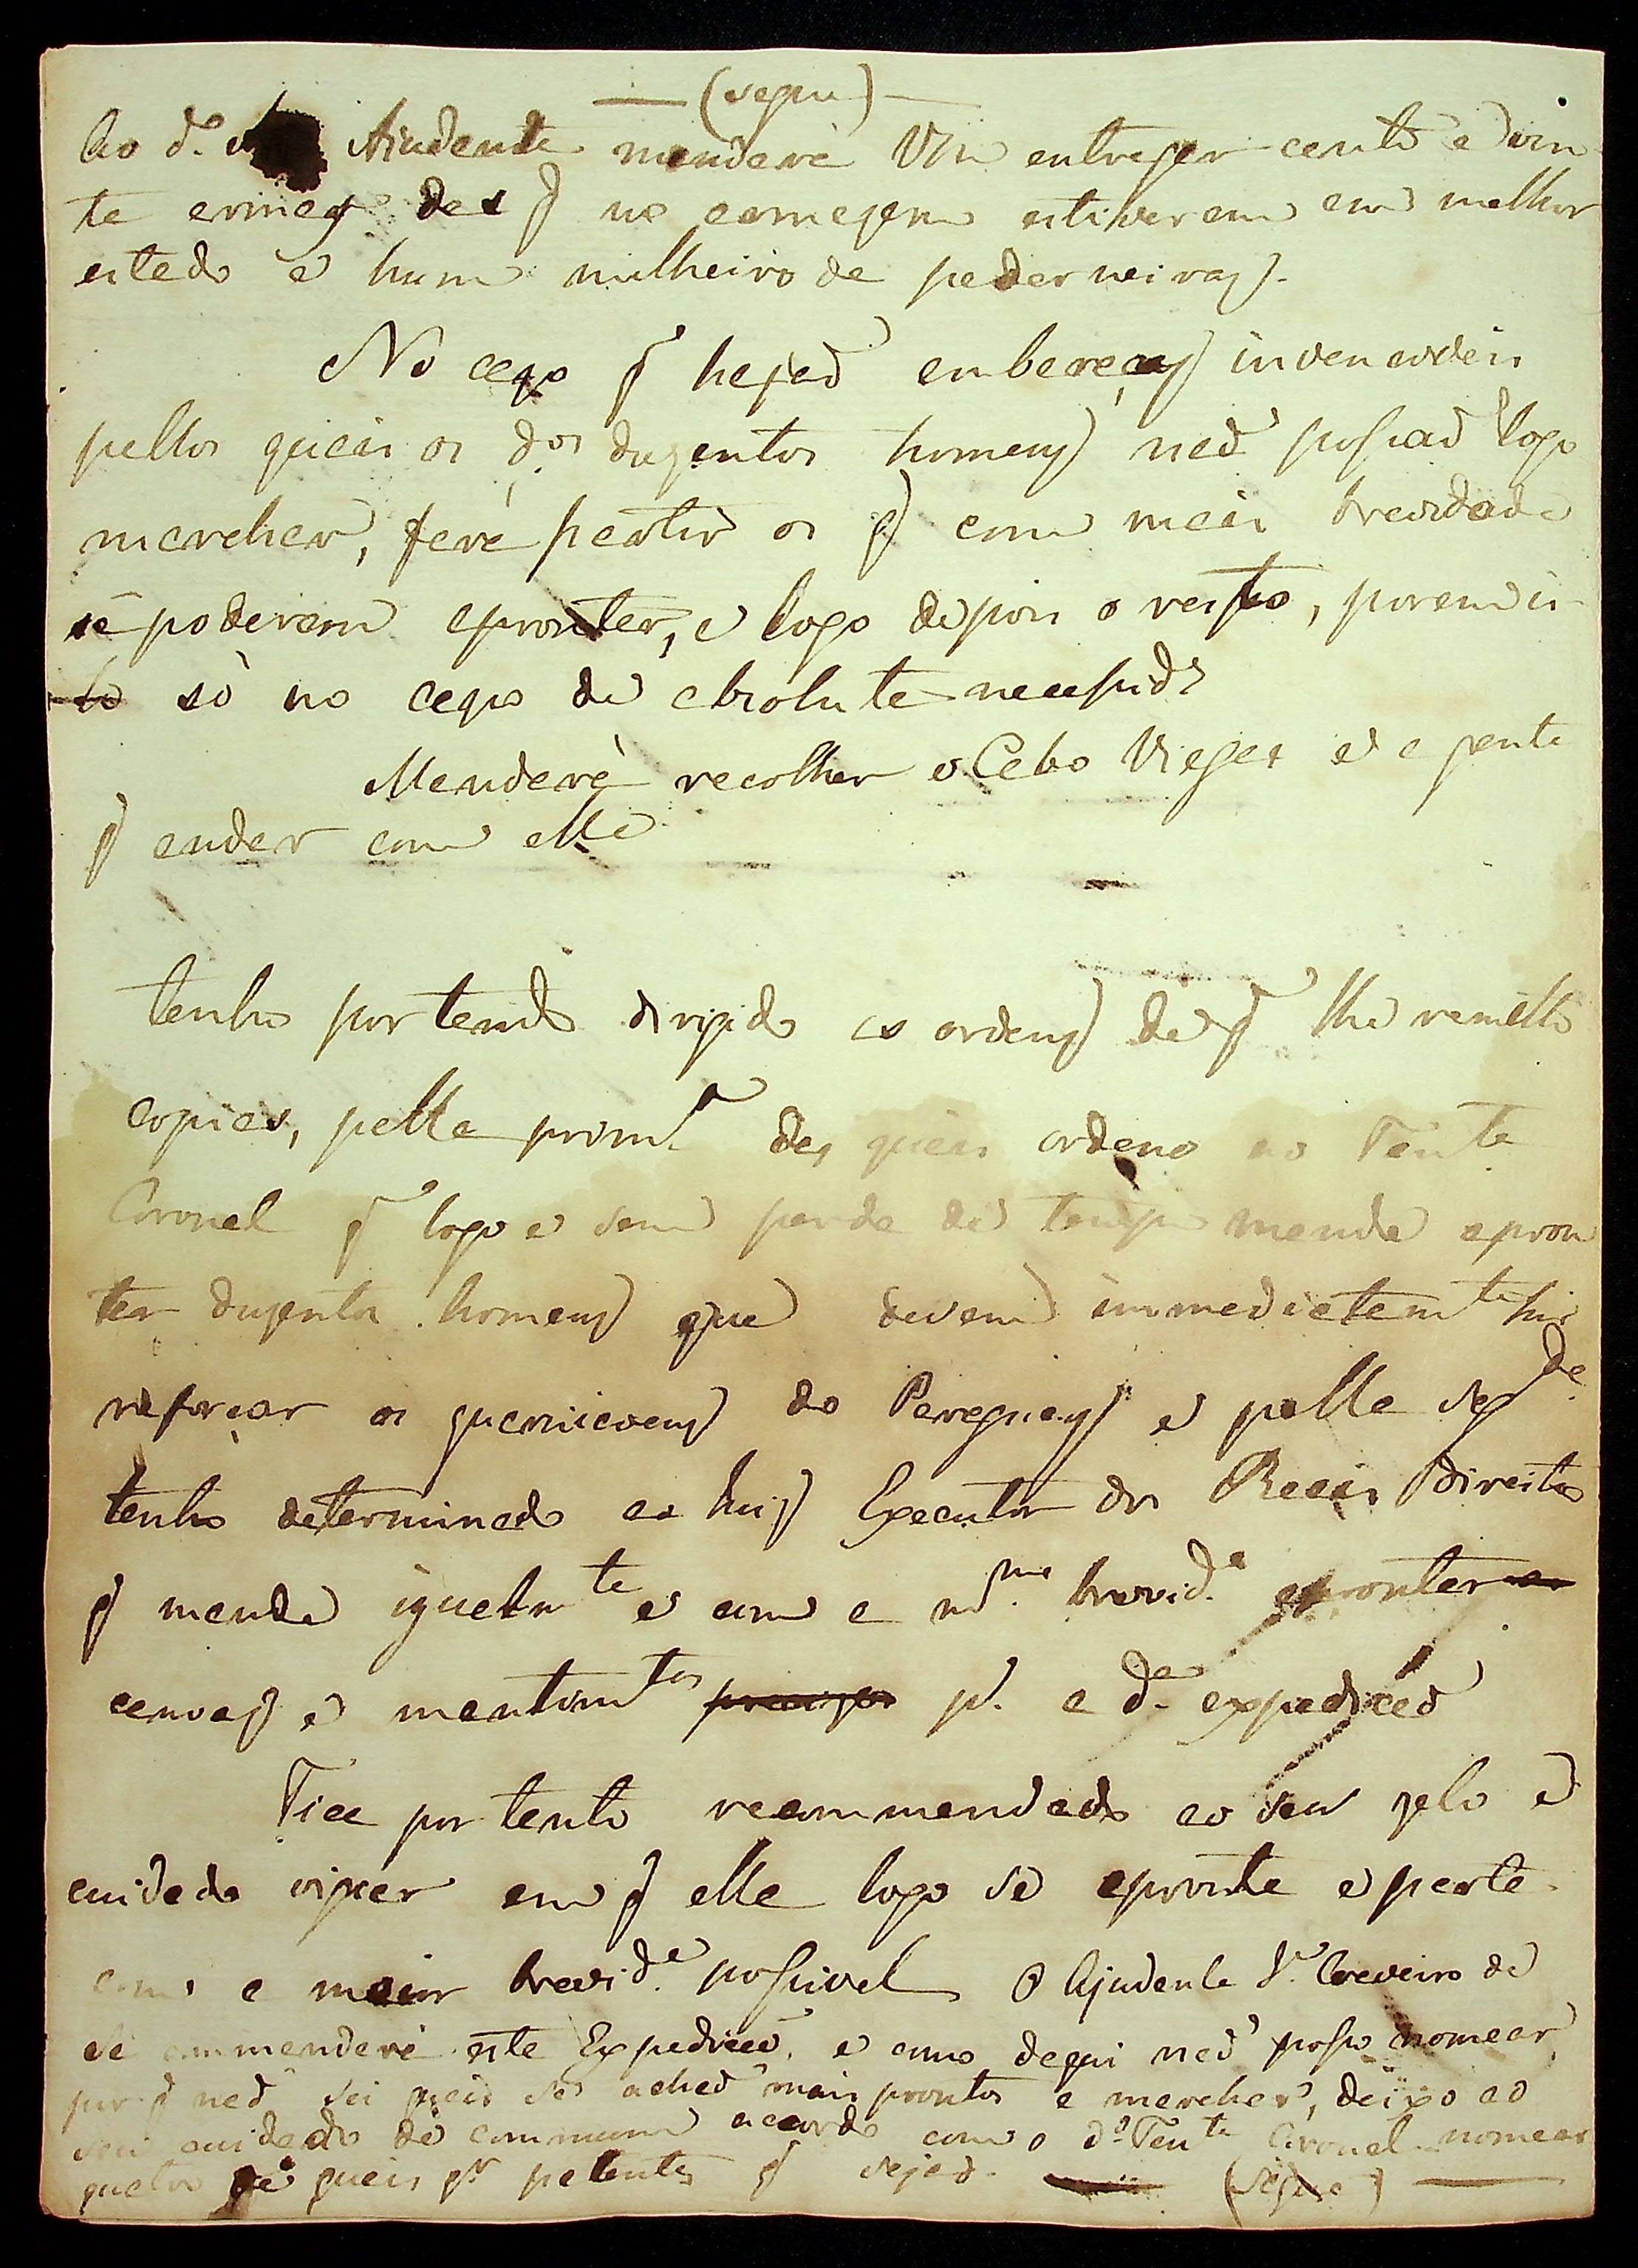 — (segue) —
Ao d.º Ajudante mandará Vm entregar cento e vin
te armas das q no armazem estiverem em melhor
estado e hum milheiro de pederneiras.
No cazo q hajaõ embaraços invenciveis
pellos quais os d.ºs duzentos homens naõ possaõ logo
marchar, fará partir os q com mais brevidade
se poderem aprontar, e logo depois o resto, porem is
to só no cazo de absoluta necessid.e
Mandará recolher o Cabo Viegas e a gente
q andar com elle
tenho portanto dirigido as ordens de q lhe remetto
copias, pella prim.ra das quais ordeno ao Ten.te
Coronel q logo e sem perda de tempo mande apron
tar duzentos homens que devem immediatam.te hir
reforçar as guarniçoens do Paraguay e pella seg.da
tenho determinado ao Juiz Executor dos Reais Direitos
q mande igualm.te e com a m.ma brevid.e aprontar as
canoas e mantim.tos precizos p.a a d.a expediçaõ
Fica portanto recommendado ao seu zelo e
cuidado vigiar em q elle logo se apronte e parta
com a maior brevid.e possivel O Ajudante Fr.co Craveiro de
Sá commandará esta Expediçaõ, e como daqui naõ posso nomear
por q naõ sei quais se achaõ mais prontos a marchar, deixo ao
seu cuidado de commum acordo com o d.º Ten.te Coronel nomear
quatro de quais q.r patentes q sejaõ. — (Segue) —